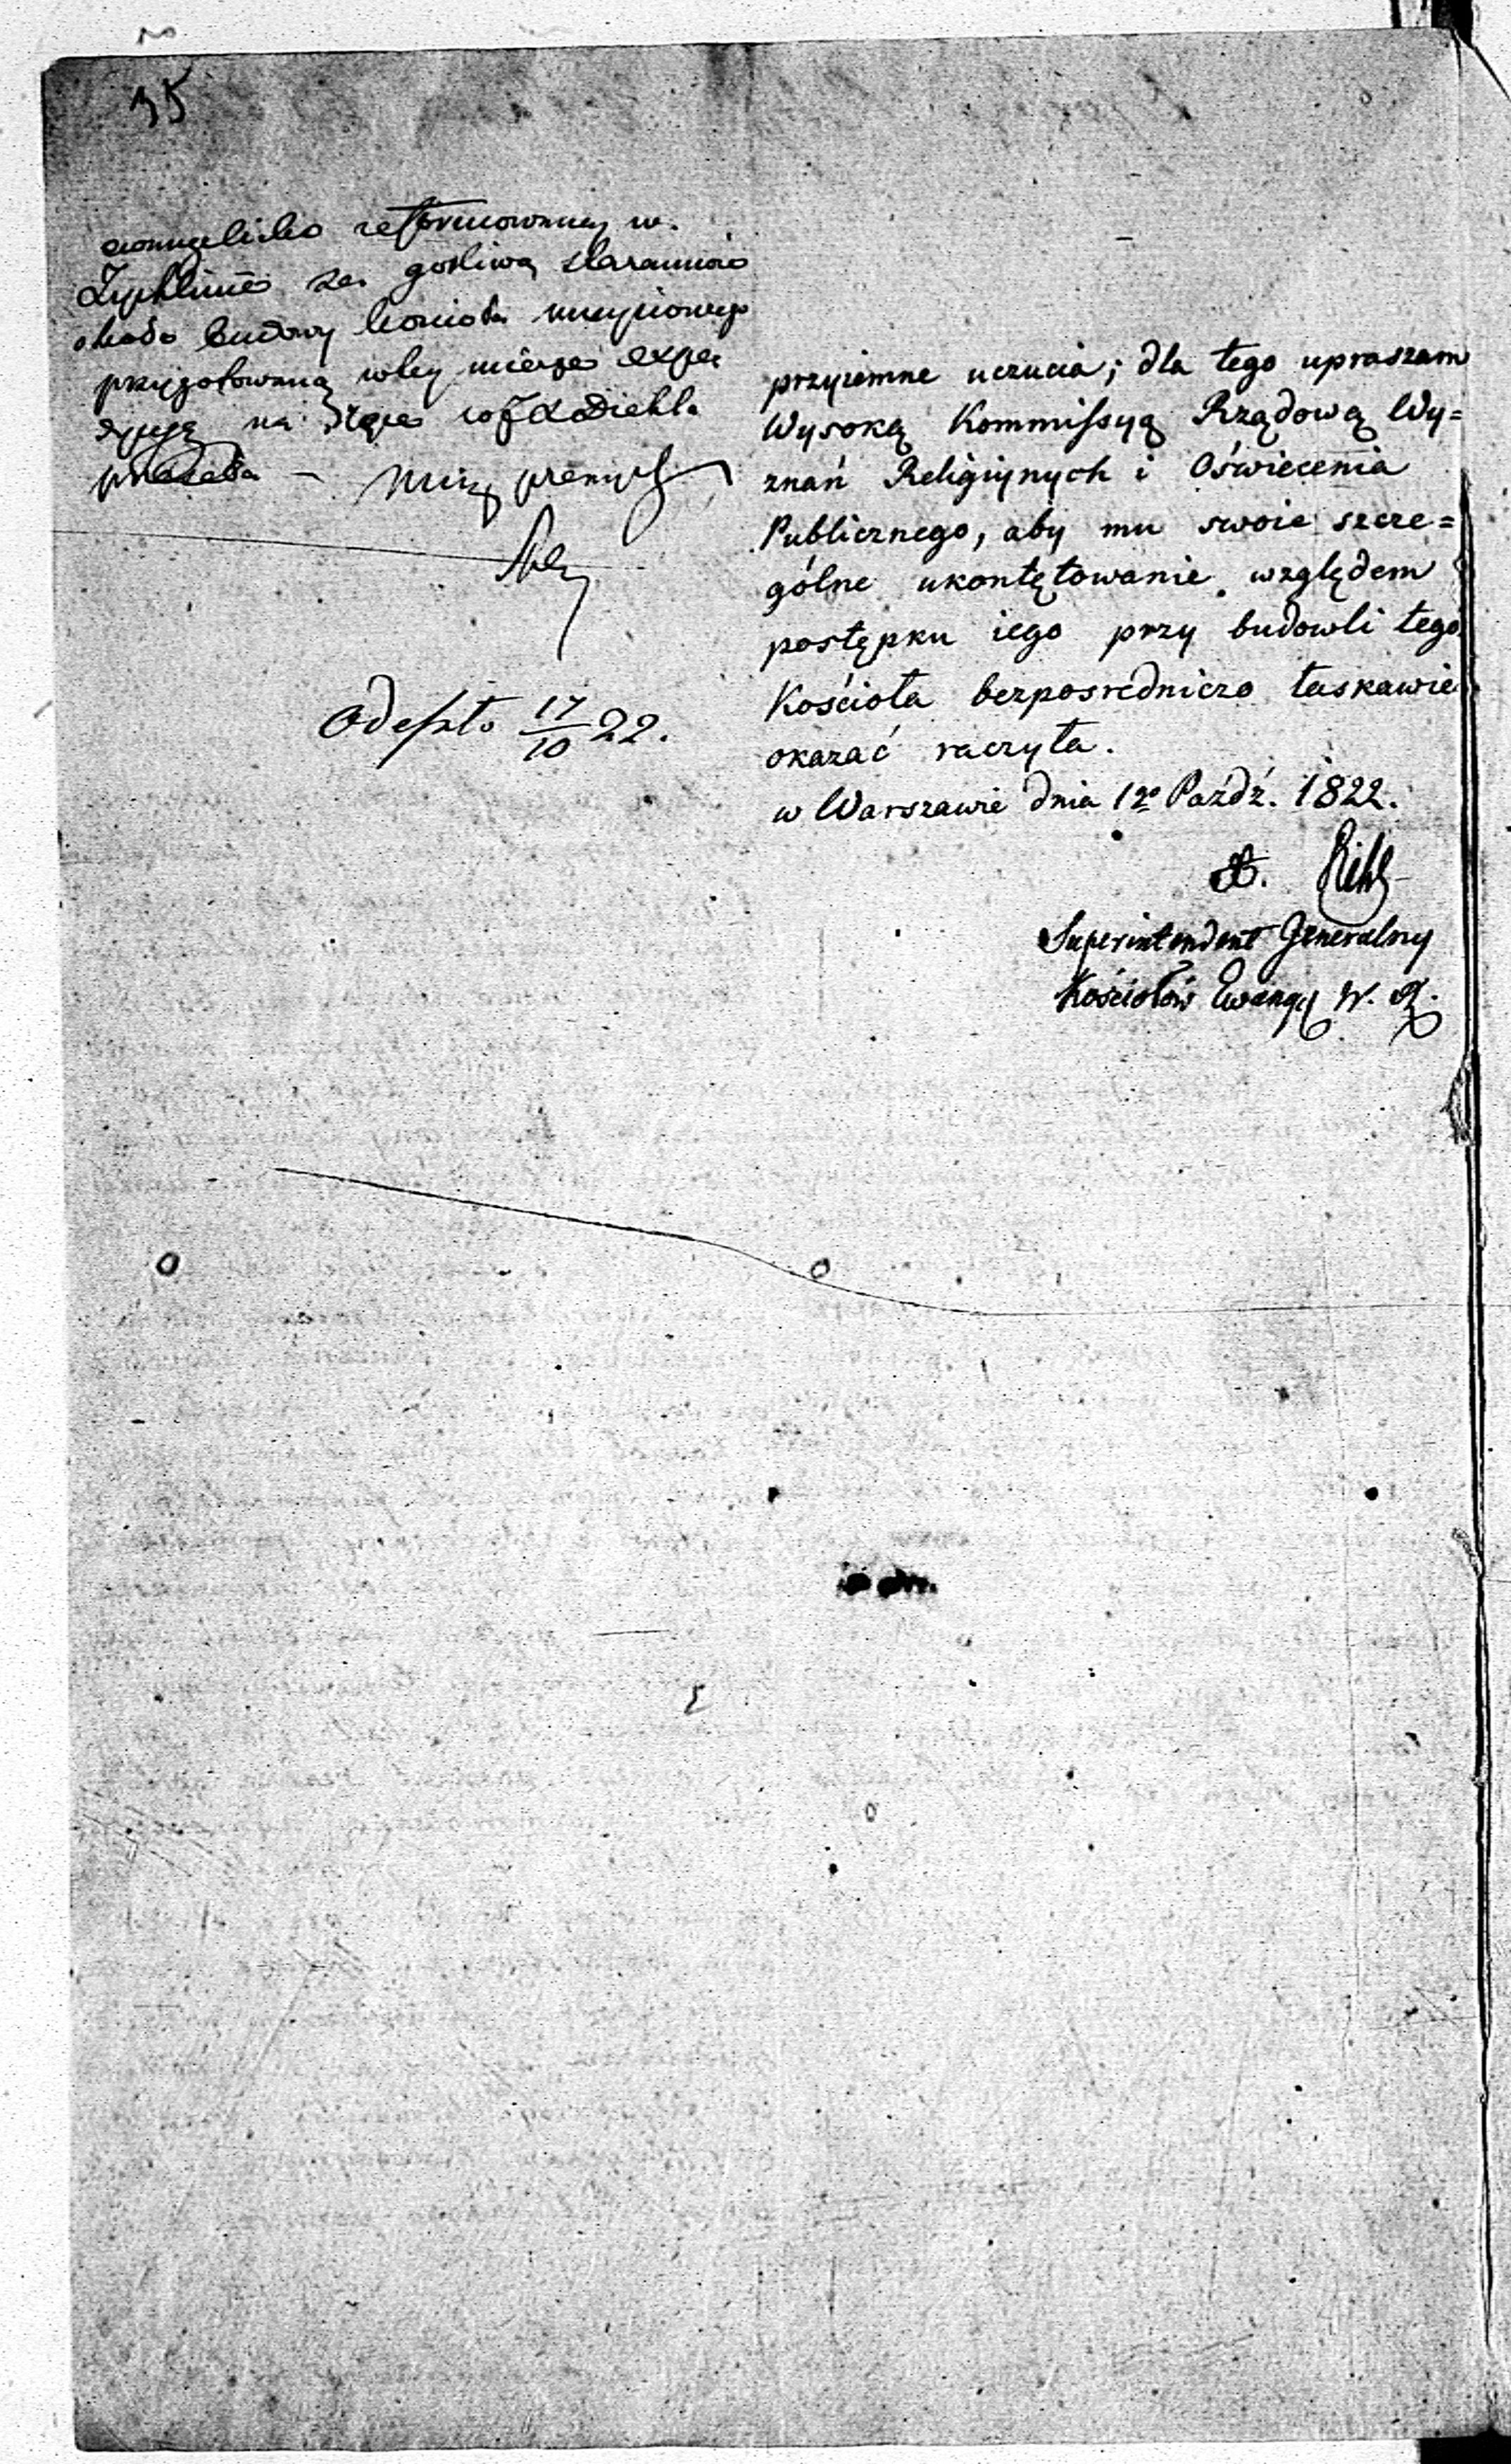 35
reformowanej w.
Żychlinie za gorliwą staranność
około budowy kościoła
przygotowaną w tey mierze expe
na ręce Diehla
Odeszło 17/10 22.
przyiemne uczucia; dla tego upraszam
Wysoką Kommissyą Rządową Wy=
znań Religiynych i Oświecenia
Publicznego, aby mu swoie szcze=
gólne ukontętowanie względem
postępku iego przy budowli tego
Kościoła bezpośredniczo łaskawie
okazać raczyła.
w Warszawie dnia 12º Paźdź. 1822.
Superintendent Generalny
Kościołów Ewang W. A.